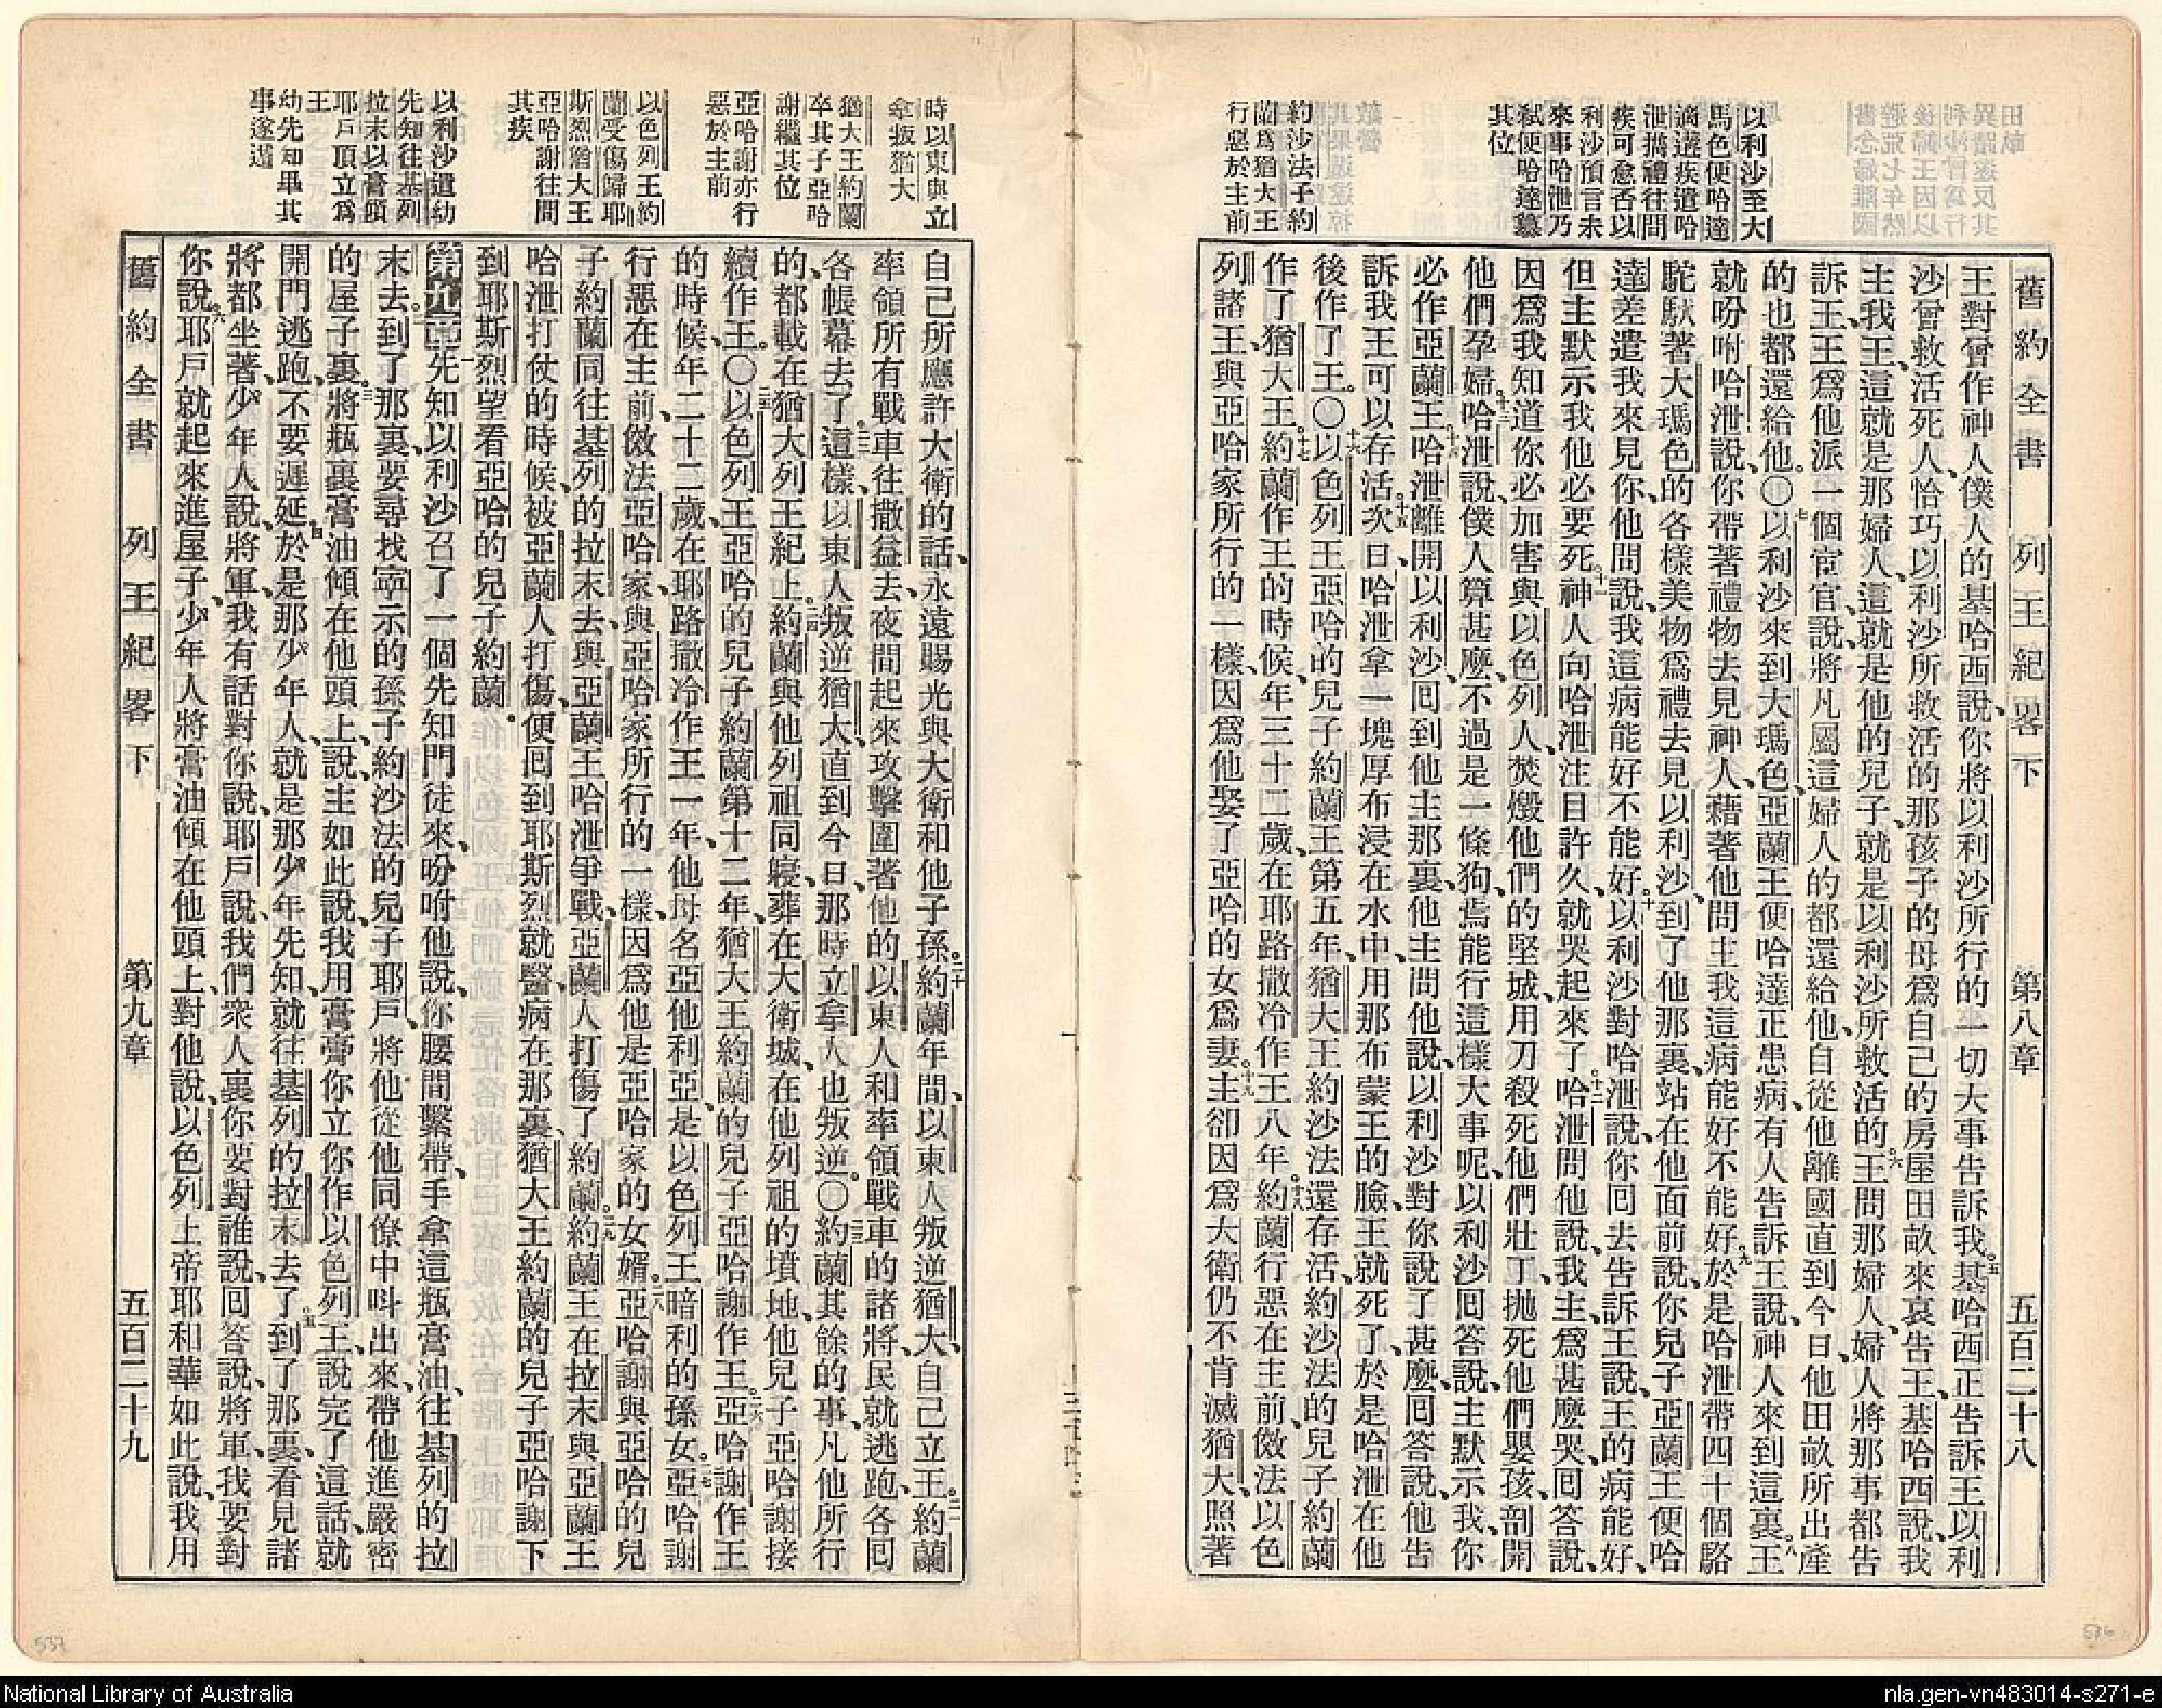 舊約全書 列王紀畧下 第八章 五百二十八
以利沙至大
馬色便哈達
遘疾遣哈
泄攜禮往問
疾可愈否以
利沙預言未
來事哈泄乃
弑便哈達纂
其位
約沙法子約
蘭爲猶大王
行惡於主前
王對曾作神人僕人的基哈西說、你將以利沙所行的一切大事告訴我。五基哈西正告訴王以利
沙曾救活死人、恰巧以利沙所救活的那孩子的母爲自己的房屋田畝來哀告王、基哈西說、我
主我王、這就是那婦人、這就是他的兒子、就是以利沙所救活的。六王問那婦人、婦人將那事都告
訴王、王爲他派一個宦官、說將凡屬這婦人的都還給他、自從他離國直到今日、他田畝所出產
的也都還給他。〇七以利沙來到大瑪色、亞蘭王便哈達正患病、有人告訴王說、神人來到這裏。八王
就吩咐哈泄說、你帶著禮物去見神人、藉著他問主我這病能好不能好。九於是哈泄帶四十個駱
駝馱著大瑪色的各樣美物爲禮去見以利沙、到了他那裏、站在他面前說、你兒子亞蘭王便哈
達差遣我來見你、他問說、我這病能好不能好。十以利沙對哈泄說、你回去告訴王說、王的病能好、
但主默示我他必要死。十一神人向哈泄注目許久、就哭起來了。十二哈泄問他說、我主、爲甚麽哭、回答說、
因爲我知道你必加害與以色列人、焚燬他們的堅城、用刀殺死他們壯丁、拋死他們嬰孩、剖開
他們孕婦。十三哈泄說、僕人算甚麽、不過是一條狗、焉能行這樣大事呢、以利沙回答說、主默示我、你
必作亞蘭王。十四哈泄離開以利沙、回到他主那裏、他主問他說、以利沙對你說了甚麽、回答說、他告
訴我王可以存活。十五次日、哈泄拿一塊厚布浸在水中、用那布蒙王的臉、王就死了、於是哈泄在他
後作了王。〇十六以色列王亞哈的兒子約蘭王第五年、猶大王約沙法還存活、約沙法的兒子約蘭
作了猶大王。十七約蘭作王的時候、年三十二歲、在耶路撒冷作王八年。十八約蘭行惡在主前、傚法以色
列諸王、與亞哈家所行的一樣、因爲他娶了亞哈的女爲妻。十九主卻因爲大衛仍不肯滅猶大、照著
時以東與立
拿叛猶大
猶大王約蘭
卒其子亞哈
謝繼其位
亞哈謝亦行
惡於主前
以色列王約
蘭受傷歸耶
斯烈猶大王
亞哈謝往問
其疾
以利沙遣幼
先知往基列
拉末以膏傾
耶戶頂立爲
王
幼先知畢其
事遂遁
自己所應許大衛的話、永遠賜光與大衛和他子孫。二十約蘭年間、以東人叛逆猶大、自己立王。二一約蘭
率領所有戰車往撒益去、夜間起來攻擊圍著他的以東人和率領戰車的諸將、民就逃跑、各回
各帳幕去了。二二這樣、以東人叛逆猶大、直到今日、那時立拿人也叛逆。〇二三約蘭其餘的事、凡他所行
的、都載在猶大列王紀上。二四約蘭與他列祖同寢、葬在大衛城、在他列祖的墳地、他兒子亞哈謝接
續作王。〇二五以色列王亞哈的兒子約蘭第十二年、猶大王約蘭的兒子亞哈謝作王。二六亞哈謝作王
的時候、年二十二歲、在耶路撒冷作王一年、他母名亞他利亞、是以色列王暗利的孫女。二七亞哈謝
行惡在主前、傚法亞哈家、與亞哈家所行的一樣、因爲他是亞哈家的女婿。二八亞哈謝與亞哈的兒
子約蘭同往基列的拉末去、與亞蘭王哈泄爭戰、亞蘭人打傷了約蘭。二九約蘭王在拉末與亞蘭王
哈泄打仗的時候、被亞蘭人打傷、便回到耶斯烈就醫、病在那裏、猶大王約蘭的兒子亞哈謝下
到耶斯烈望看亞哈的兒子約蘭。
第九章 一先知以利沙召了一個先知門徒來、吩咐他說、你腰間繫帶、手拿這瓶膏油、往基列的拉
末去。二到了那裏、要尋找寧示的孫子約沙法的兒子耶戶、將他從他同僚中呌出來、帶他進嚴密
的屋子裏。三將瓶裏膏油傾在他頭上、說、主如此說、我用膏膏你立你作以色列王、說完了這話、就
開門逃跑、不要遲延。四於是那少年人、就是那少年先知、就往基列的拉末去了。五到了那裏、看見諸
將都坐著、少年人說、將軍、我有話對你說、耶戶說、我們衆人裏你要對誰說、回答說、將軍、我要對
你說。六耶戶就起來進屋子、少年人將膏油傾在他頭上、對他說、以色列上帝耶和華如此說、我用
舊約全書 列王紀畧下 第九章 五百二十九
537
536
National Library of Australia
nla.gen-vn483014-s271-e